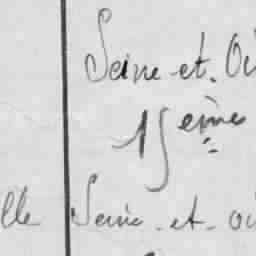 Seine-et-Oi
15 ème
lle Seine-et-oi